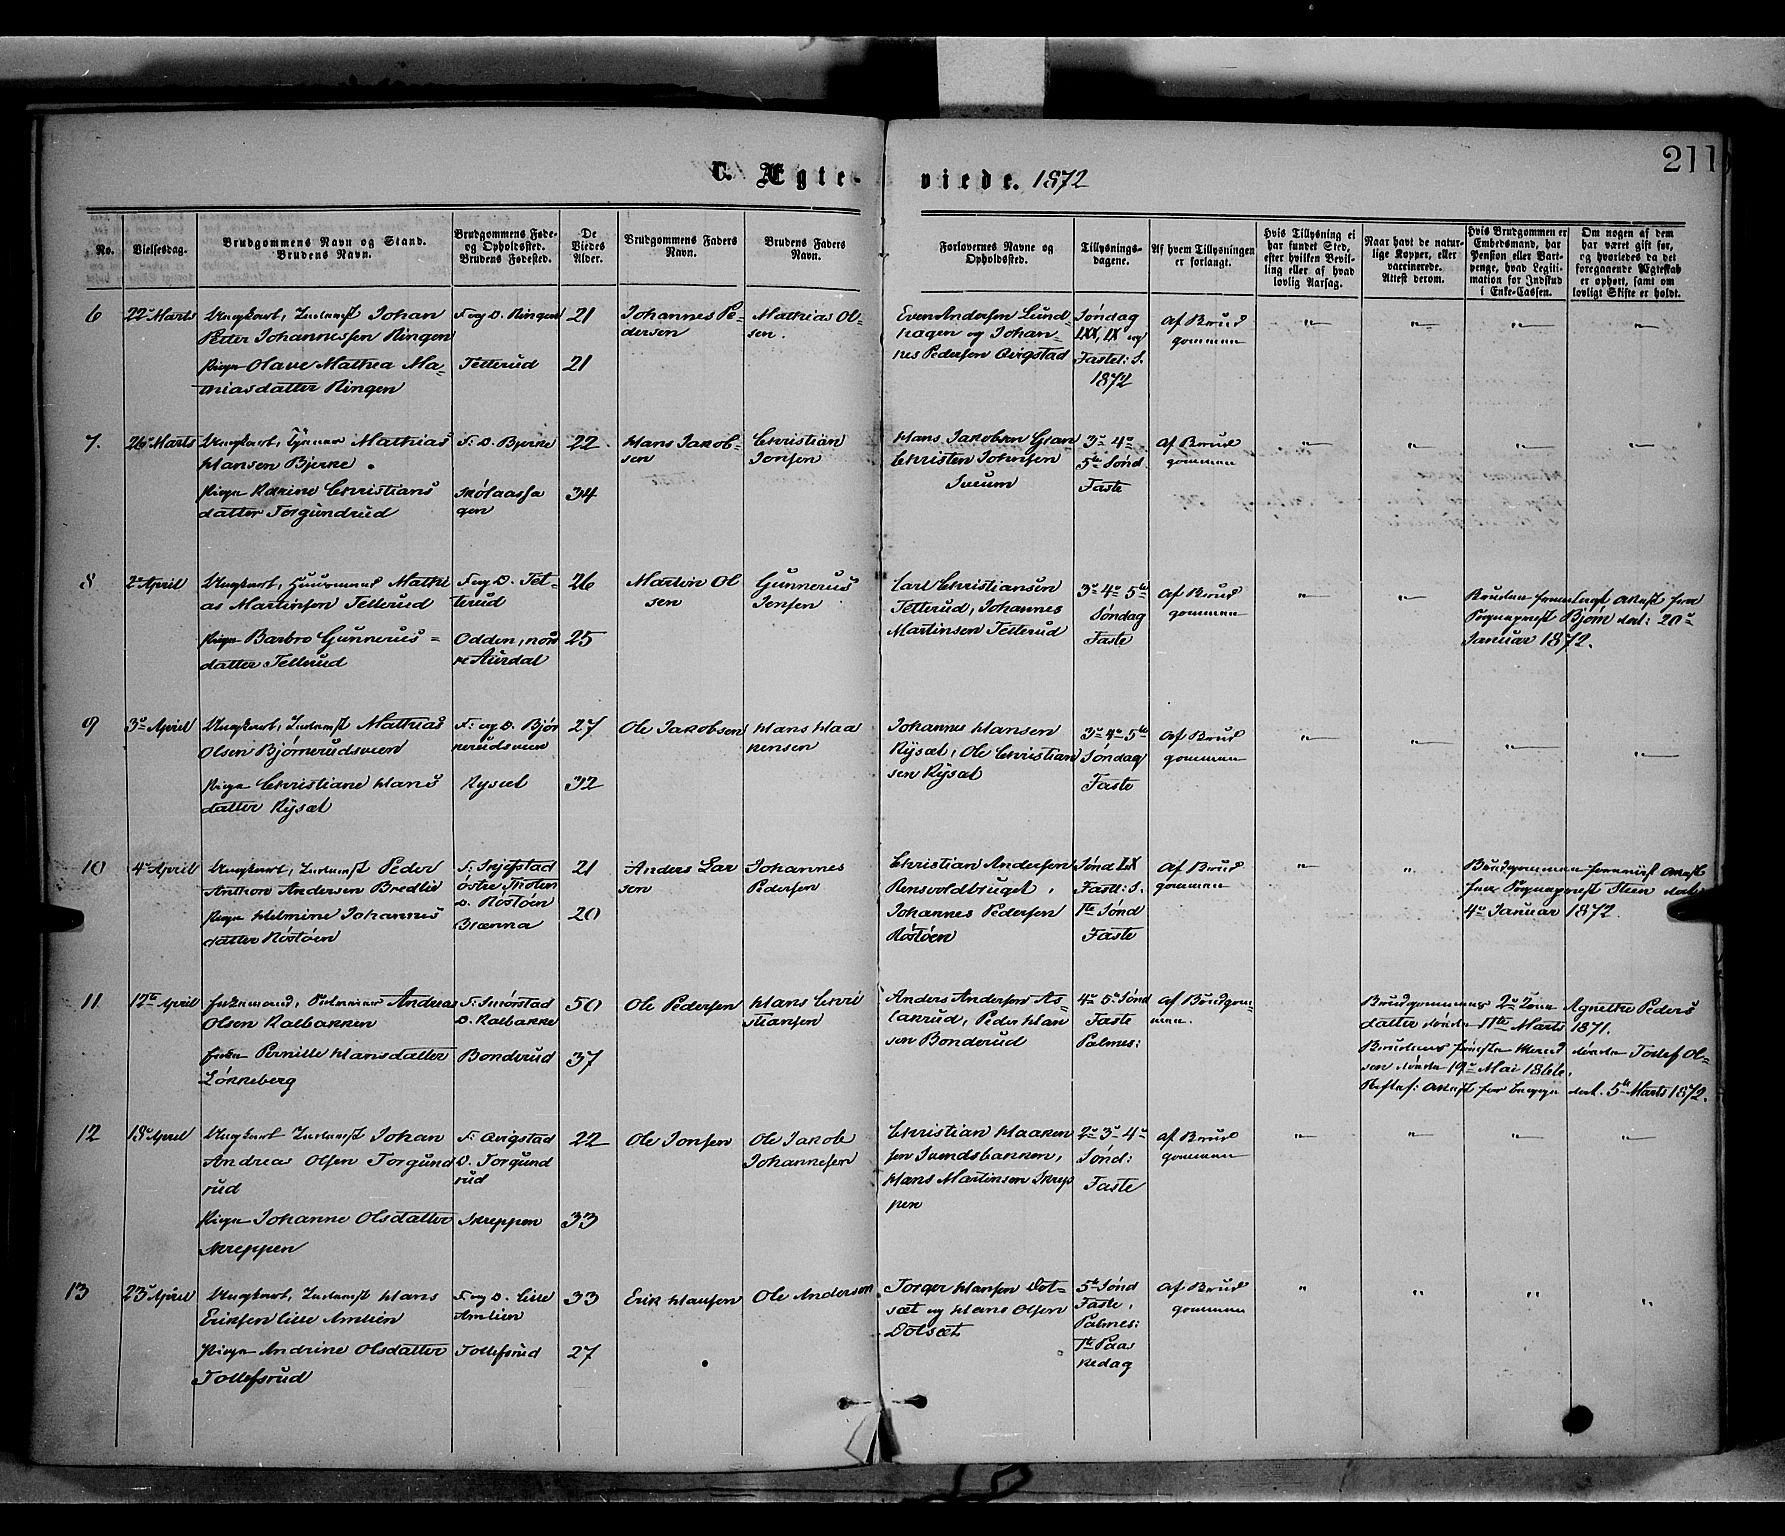 C. Ægte-viede. 1872
211
No.
Vielsesdag.
Brudgommens Navn og Stand.
Brudens Navn.
Brudgommens Føde-
og Opholdssted.
Brudens Fødested.
De
Viedes
Alder.
Brudgommens Faders
Navn.
Brudens Faders
Navn.
Forlovernes Navne og
Opholdssted.
Tillysnings-
dagene.
Af hvem Tillysningen
er forlangt.
Hvis Tillysning ei
har fundet Sted,
efter hvilken Bevil-
ling eller af hvad
lovlig Aarsag.
Naar havt de natur-
lige Kopper, eller
vaccinerede.
Attest derom.
Hvis Brudgommen er
Embedsmand, har
Pension eller Vart-
penge, hvad Legiti-
mation for Indskud
i Enke-Cassen.
Om nogen af dem
har været gift før,
og hvorledes da det
foregaaende Ægteskab
er ophørt, samt om
lovligt Skifte er holdt.
6
22 Marts
Ungkarl, Inderst Johan
Peter Johannessen Ringen
Pige Olave Mathea Ma-
thiasdatter Ringen
F. og O. Ringen
Tetterud
21
21
Johannes Pe-
dersen
Mathias Ol-
sen.
Even Andersen Lund-
hagen og Johan-
nes Pedersen Qvigstad
Søndag
LXX, LX og
Fastel: S.
1872
Af Brud
gommen
7.
26 Marts
Ungkarl, Mathias
Hansen Bjerke
Pige Karine Christians
datter Torgundrud
F. O. Bjerke
Skolaasha
gen
22
34
Hans Jakob-
sen
Christian
Jonsen
Hans Jakobsen Gran
Christen Johnsen
Sveum
3die 4de
5te Sønd
Faste
Af Brud
gommen
8
2 April
Ungkarl, Huusmand Mathi
as Martinsen Tetterud
Pige Barbro Gunnerus=
datter Tetterud
F. og O. Tet-
terud
Odden, nor
re Aurdal
26
25
Martin Ol
sen
Gunnerus
Jensen
Carl Christiansen
Tetterud, Johannes
Martinsen Tetterud
3die 4de 5te
Søndag
Faste
Af Brud
gommen
Bruden fremlagt Attest fra
Sogneprest Bjørn dat: 20de
Januar 1872.
9
3 April
Ungkarl, Inderst Mathias
Olsen Bjørnerudsveen
Pige Christiane Hans
datter Rysæt
F. og O. Bjør
nerudsveen
Rysæt
27
32
Ole Jakobsen
Hans Haa
kensen
Johannes Hansen
Rysæt, Ole Christian
sen Rysæt
3die 4de 5te
Søndag
Faste
Af Brud
gommen
10
4 April
Ungkarl, Inderst Peder
Anthon Andersen Bredlie
Pige Helmine Johannes
datter Røstøen
F. Skjefstad
østre Thoten
O. Røstøen
Brænna
21
20
Anders Lar
sen
Johannes
Pedersen
Christian Andersen
Rensvoldbruget,
Johannes Pedersen
Røstøen
Sønd LX
Fastel: S.
1te Sønd
Faste
Af Brud
gommen
Brudgommen fremviist Attest
fra Sogneprest Steen dat:
4de Januar 1872.
11
12te April
Enkemand, Andreas
Olsen Kalbakken
Enke Pernille Hansdatter
Løkkeberg
F. Smørstad
O. Kalbakke
Bonderud
50
37
Ole Pedersen
Hans Chri
stiansen
Anders Andersen As-
lakrud, Peder Han
sen Bonderud
4de 5te Sønd
Faste
Palmes:
Af Brudgom-
men.
Brudgommens 2den Kone Agnethe Peders
datter døde 11te Marts 1871.
Brudens første Mand døde Tollef Ol-
sen døde 19de Mai 1866.
Skiftes: Attest for begge dat. 5te Marts 1872.
12
18 April
Ungkarl Inderst Johan
Andreas Olsen Torgund
rud
Pige Johanne Olsdatter
Skreppen
F. Qvigstad
O. Torgund
rud
Skreppen
22
33
Ole Jonsen
Ole Jakob
Johannesen
Christian Haaken
sen Svendsbakken,
Hans Martinsen Skrep
pen
2den 3die 4de
Sønd:
Faste
Af Brud
gommen
13
23 April
Ungkarl, Inderst Hans
Eriksen Lille Amlien
Pige Andrine Olsdatter
Tollefsrud
F. og O. Lille
Amlien
Tollefsrud
33
27
Erik Hansen
Ole Anderson
Torger Hansen Dot-
sæt og Hans Olsen
Dotsæt
5te Sønd
Faste,
Palmes:
1te Paas
kedag
Af Brud
gommen